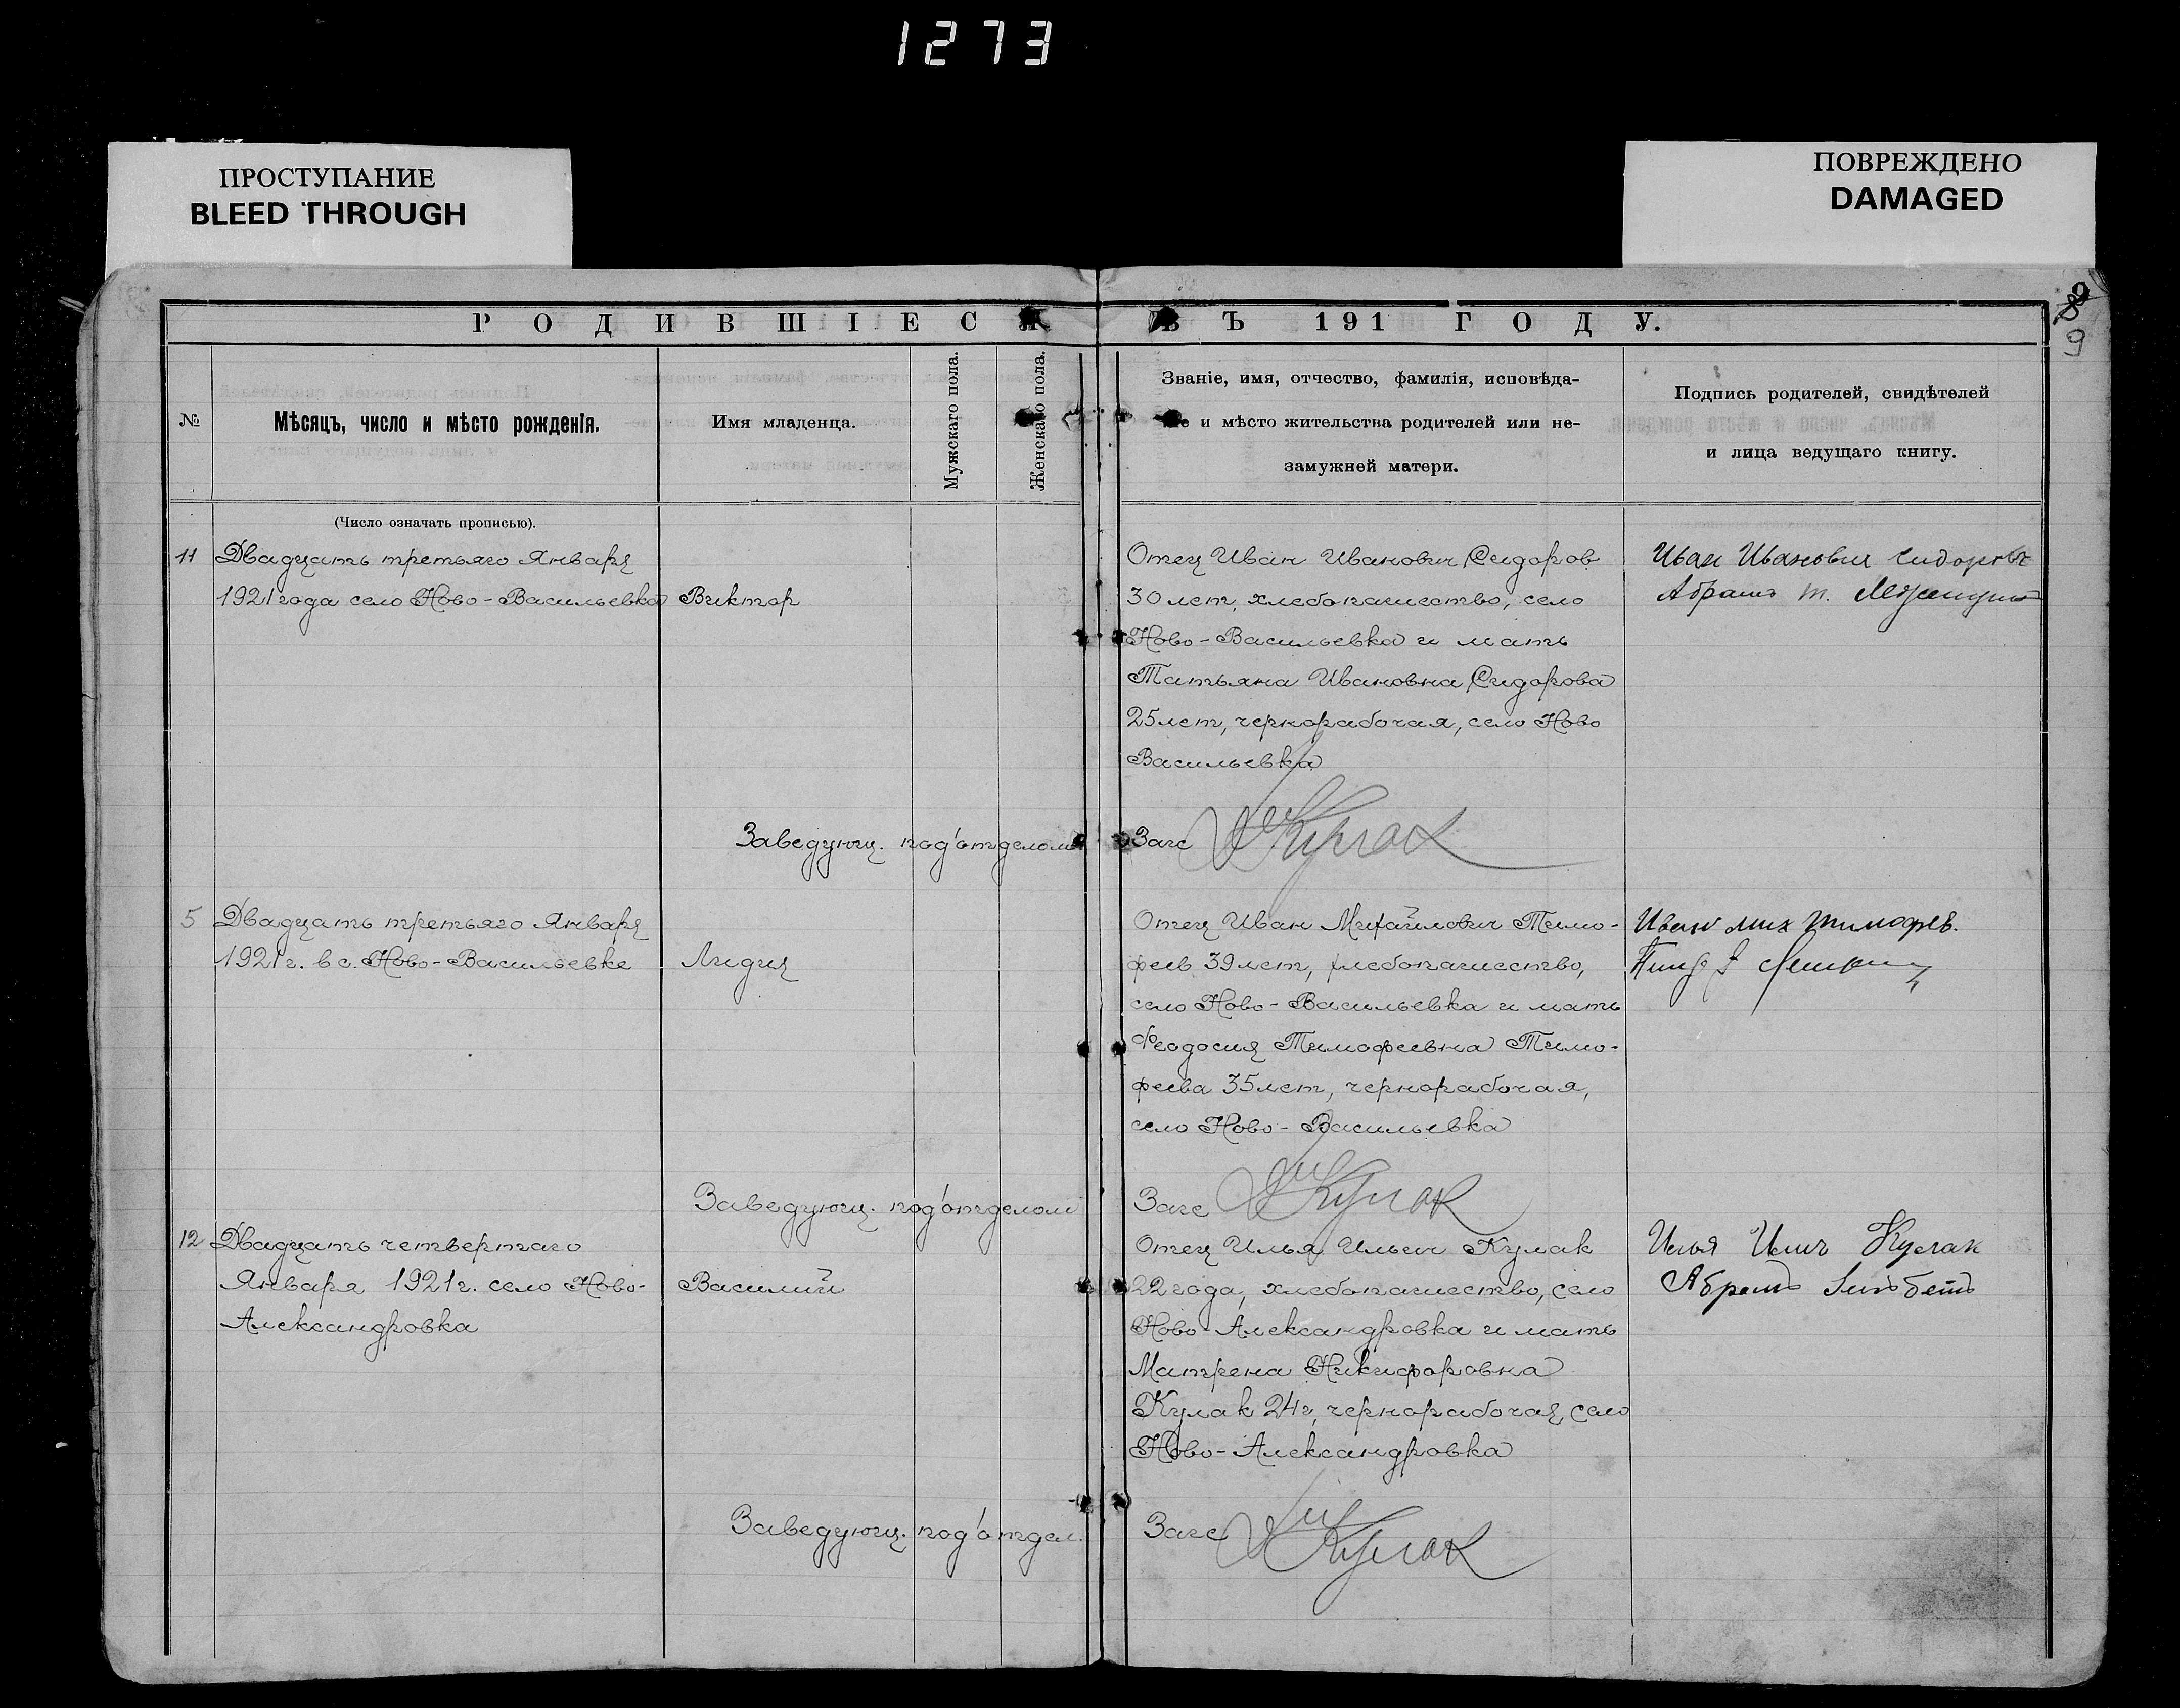 1273
ПРОСТУПАНИЕ
BLEED THROUGH
ПОВРЕЖДЕНО
DAMAGED
РОДИВШІЕСЯ ВЪ 191 ГОДУ.
9
№
Мѣсяцъ, число и мѣсто рожденія.
Имя младенца.
Мужскаго пола.
Женскаго пола.
Званіе, имя, отчество, фамилія, исповѣда-
и мѣсто жительства родителей или не-
замужней матери.
Подпись родителей, свидѣтелей
и лица ведущаго книгу.
(Число означать прописью).
11 Двадцать третьяго Января
1921 года село Ново-Васильевка
Виктор
Отец Иван Иванович Сидоров
30 лет, хлебопашество, село
Ново-Васильевка и мать
Татьяна Ивановна Сидорова
25 лет, чернорабочая, село Ново
Васильевка
Иван Иванович Сидоровъ
Абрамъ
Заведующ. под'отделом Загс Кулак
5 Двадцать третьяго Января
1921 г. в с. Ново-Васильевке
Лидия
Отец Иван Михайлович Тимо-
феев 39 лет, хлебопашество,
село Ново-Васильевка и мать
Феодосия Тимофеевна Тимо-
феева 35 лет, чернорабочая,
село Ново-Васильевка
Иван мих Тимофев.
Заведующ. под'отделом Загс Кулак
12 Двадцать четвертаго
Января 1921 г. село Ново-
Александровка
Василий
Отец Илья Ильич Кулак
22 года, хлебопашество, село
Ново-Александровка и мать
Матрена Никифоровна
Кулак 24 г, чернорабочая, село
Ново-Александровка
Илья Илич Кулак
Абрамъ
Заведующ. под'отдел. Загс Кулак